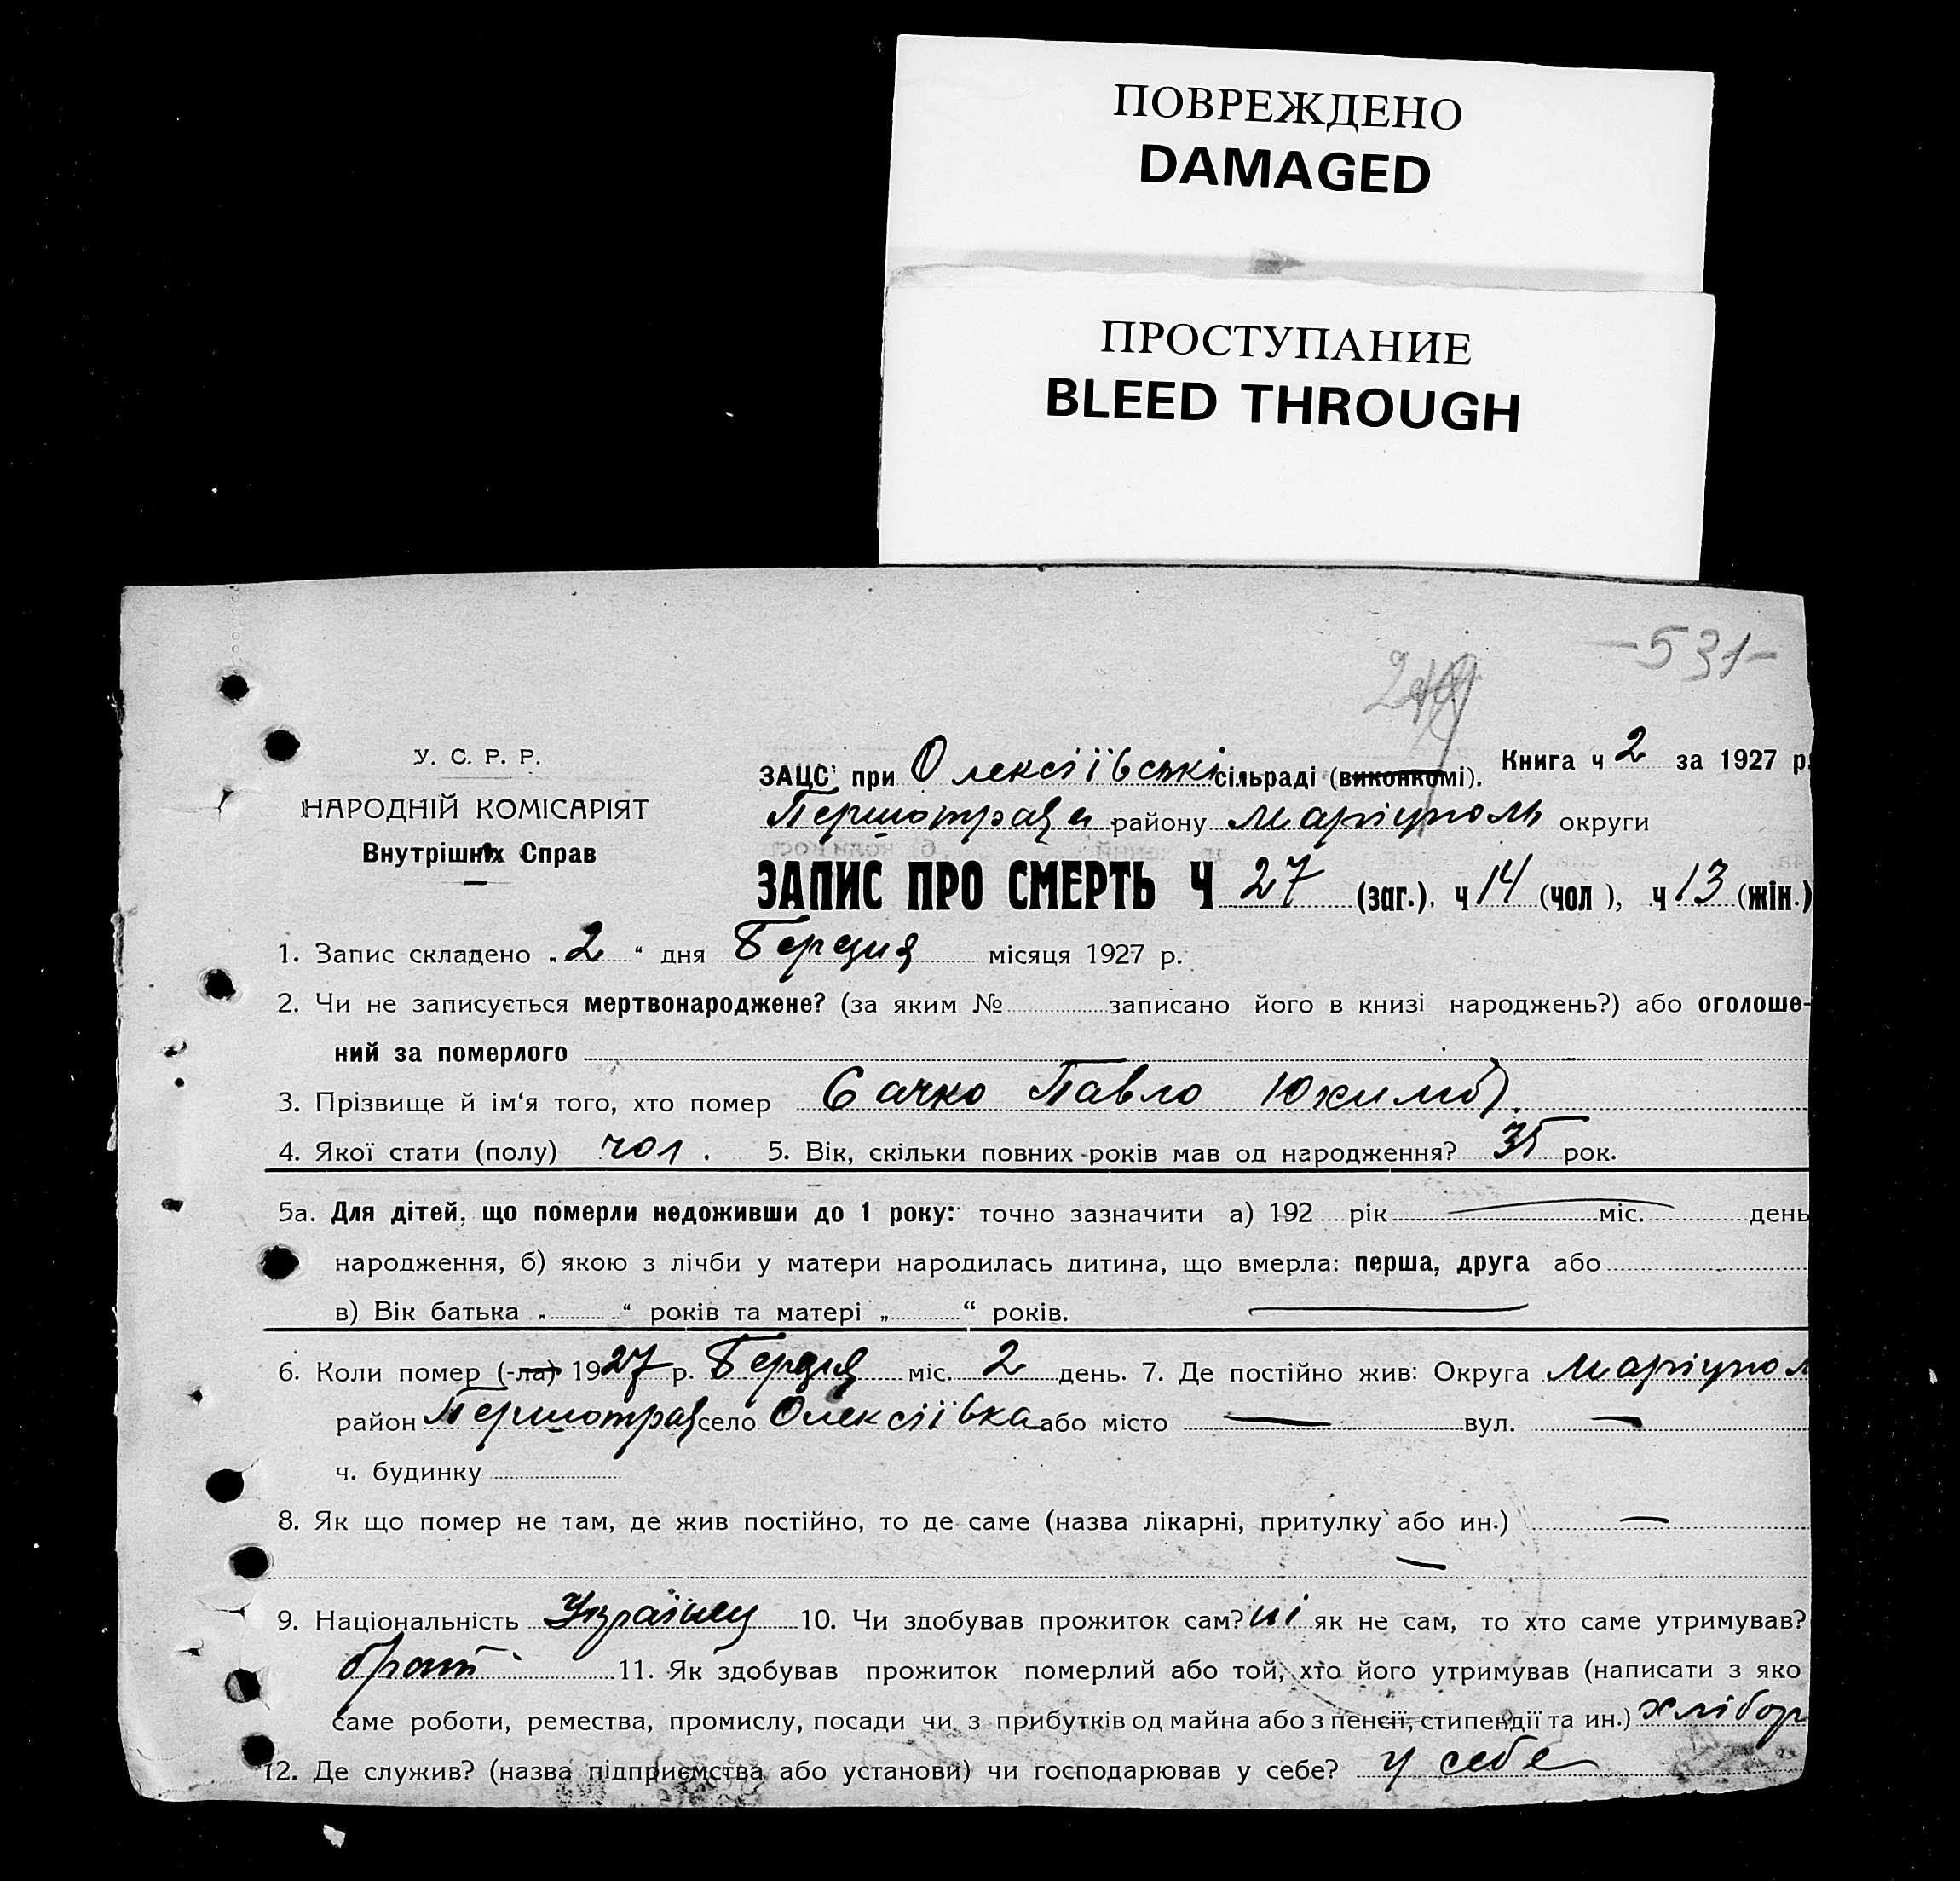 ПОВРЕЖДЕНО
DAMAGED
ПРОСТУПАНИЕ
BLEED THROUGH
-531-
У. С. Р. Р.
НАРОДНІЙ КОМІСАРІЯТ
Внутрішніх Справ
Книга ч 2 за 1927 р.
ЗАЦС при Олексіївські сільраді (виконкомі).
Першотрав району Маріуполь округи
ЗАПИС ПРО СМЕРТЬ Ч 27 (заг.), ч 14 (чол), ч 13 (жін.)
1. Запис складено „2“ дня Березня місяця 1927 р.
2. Чи не записується мертвонароджене? (за яким № записано його в книзі народжень?) або оголоше-
ний за померлого
3. Прізвище й ім'я того, хто помер Сачко Павло Юхимов.
4. Якої стати (полу) чол. 5. Вік, скільки повних років мав од народження? 35 рок.
5а. Для дітей, що померли недоживши до 1 року: точно зазначити а) 192 рік міс. день
народження, б) якою з лічби у матери народилась дитина, що вмерла: перша, друга або
в) Вік батька „ “ років та матері „ “ років.
6. Коли помер (-ла) 1927 р. Березня міс. 2 день. 7. Де постійно жив: Округа Маріупол
район Першотрав село Олексіївка або місто — вул. —
ч. будинку
8. Як що помер не там, де жив постійно, то де саме (назва лікарні, притулку або ин.) —
—
9. Національність Українец 10. Чи здобував прожиток сам? ні як не сам, то хто саме утримував?
брат 11. Як здобував прожиток померлий або той, хто його утримував (написати з яко
саме роботи, ремества, промислу, посади чи з прибутків од майна або з пенсії, стипендії та ин.) хлібор
12. Де служив? (назва підприємства або установи) чи господарював у себе? у себе